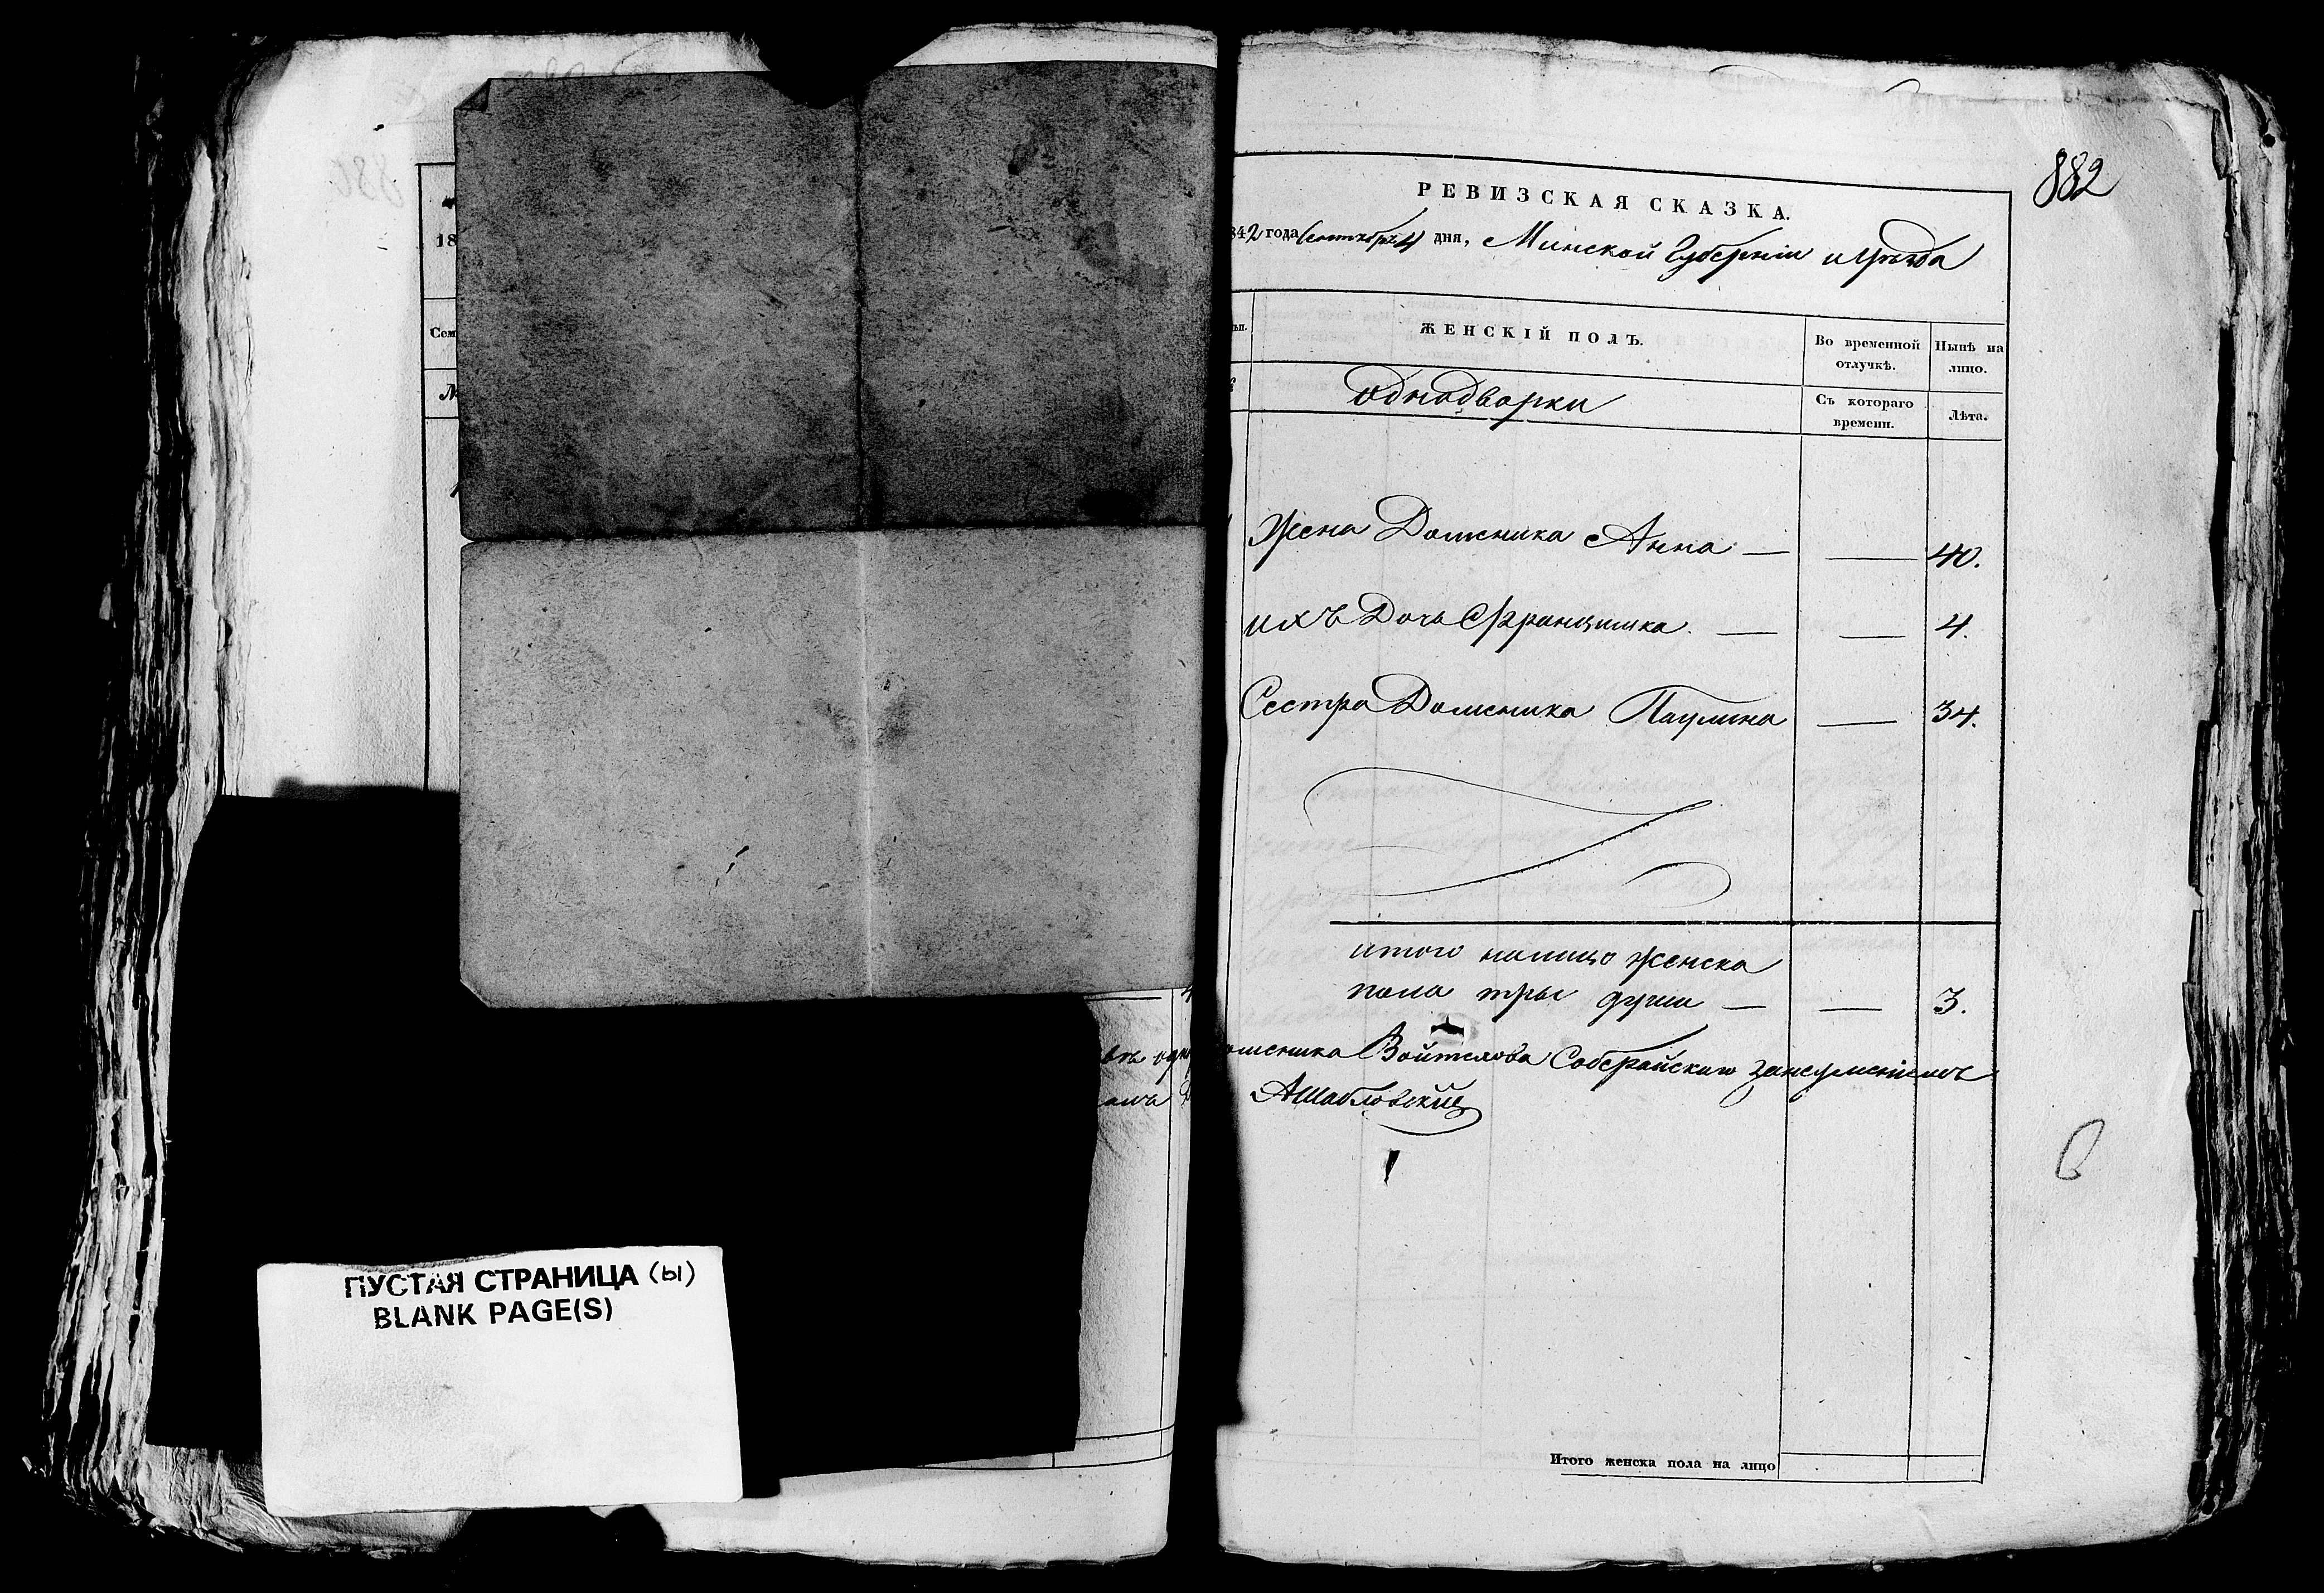 18
Сем
№
въ одн
ПУСТАЯ СТРАНИЦА (ы)
BLANK PAGE(S)
882
РЕВИЗСКАЯ СКАЗКА.
842 года Сентября 4 дня, Минской Губерніи и Уѣзда
ЖЕНСКІЙ ПОЛЪ.
Во временной отлучкѣ.
Нынѣ на лицо.
однодворки
Съ котораго времени.
Лѣта.
Жена Доменика Анна — — 40.
ихъ Дочь Францишка. — — 4.
Сестра Доменика Паулина — 34.
итого налицо женска
пола тры души — — 3.
оменика Войтехова
АШабловскій
Итого женска пола на лицо